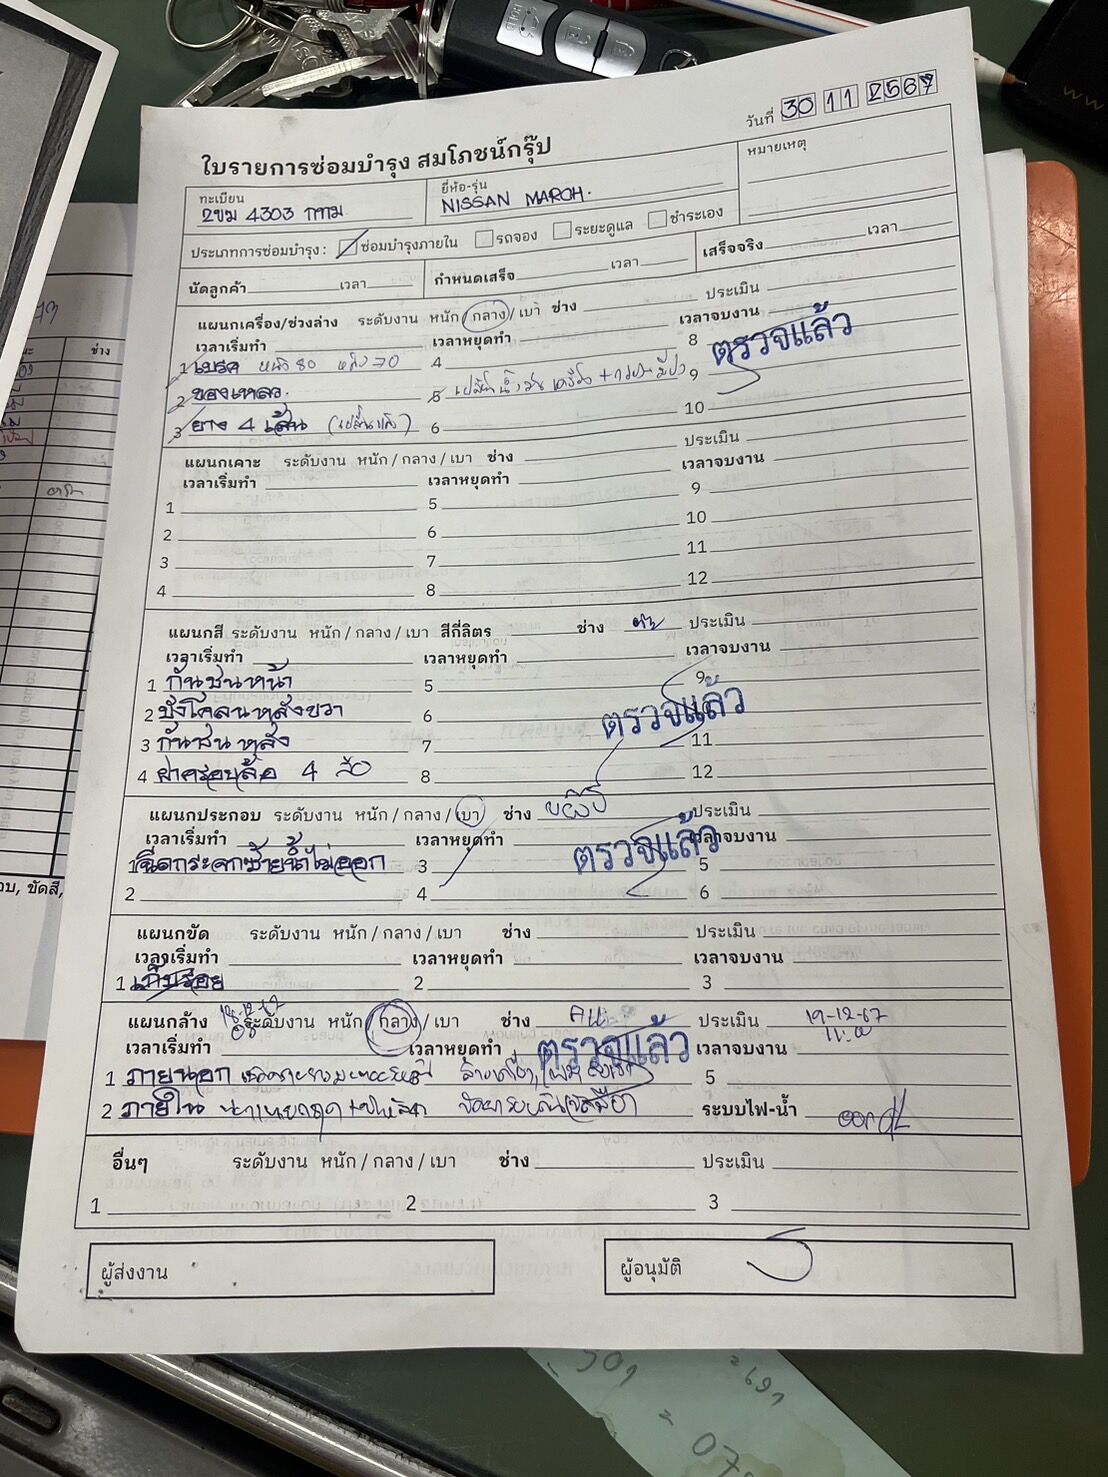 วันที่ 30 11 2567
ใบรายการซ่อมบำรุง สมโภชน์กรุ๊ป
หมายเหตุ
ทะเบียน 2ขม 4303 กทม.
ยี่ห้อ-รุ่น NISSAN MARCH.
ประเภทการซ่อมบำรุง : ซ่อมบำรุงภายใน รถจอง ระยะดูแล ชำระเอง
นัดลูกค้า เวลา กำหนดเสร็จ เวลา เสร็จจริง เวลา
แผนกเครื่อง/ช่วงล่าง ระดับงาน หนัก / กลาง / เบา ช่าง ประเมิน
เวลาเริ่มทำ เวลาหยุดทำ เวลาจบงาน
1 เบรค หน้า 80 หลัง 70 4 8 ตรวจแล้ว
2 ของเหลว. 5 9
3 ยาง 4 เส้น (เปลี่ยนแล้ว) 6 10
แผนกเคาะ ระดับงาน หนัก / กลาง / เบา ช่าง ประเมิน
เวลาเริ่มทำ เวลาหยุดทำ เวลาจบงาน
1 5 9
2 6 10
3 7 11
4 8 12
แผนกสี ระดับงาน หนัก / กลาง / เบา สีกี่ลิตร ช่าง ประเมิน
เวลาเริ่มทำ เวลาหยุดทำ เวลาจบงาน
1 กันชนหน้า 5 9
2 บังโคลนหลังขวา 6 ตรวจแล้ว
3 กันชนหลัง 7 11
4 ฝาครอบล้อ 4 ล้อ 8 12
แผนกประกอบ ระดับงาน หนัก / กลาง / เบา ช่าง ประเมิน
เวลาเริ่มทำ เวลาหยุดทำ เวลาจบงาน
1 ฉีดกระจกซ้ายน้ำไม่ออก 3 ตรวจแล้ว 5
2 4 6
แผนกขัด ระดับงาน หนัก / กลาง / เบา ช่าง ประเมิน
เวลาเริ่มทำ เวลาหยุดทำ เวลาจบงาน
1 เก็บรอย 2 3
แผนกล้าง ระดับงาน หนัก / กลาง / เบา ช่าง ประเมิน 19-12-67
เวลาเริ่มทำ เวลาหยุดทำ ตรวจแล้ว เวลาจบงาน
1 ภายนอก 5
2 ภายใน ระบบไฟ-น้ำ
อื่นๆ ระดับงาน หนัก / กลาง / เบา ช่าง ประเมิน
1 2 3
ผู้ส่งงาน
ผู้อนุมัติ